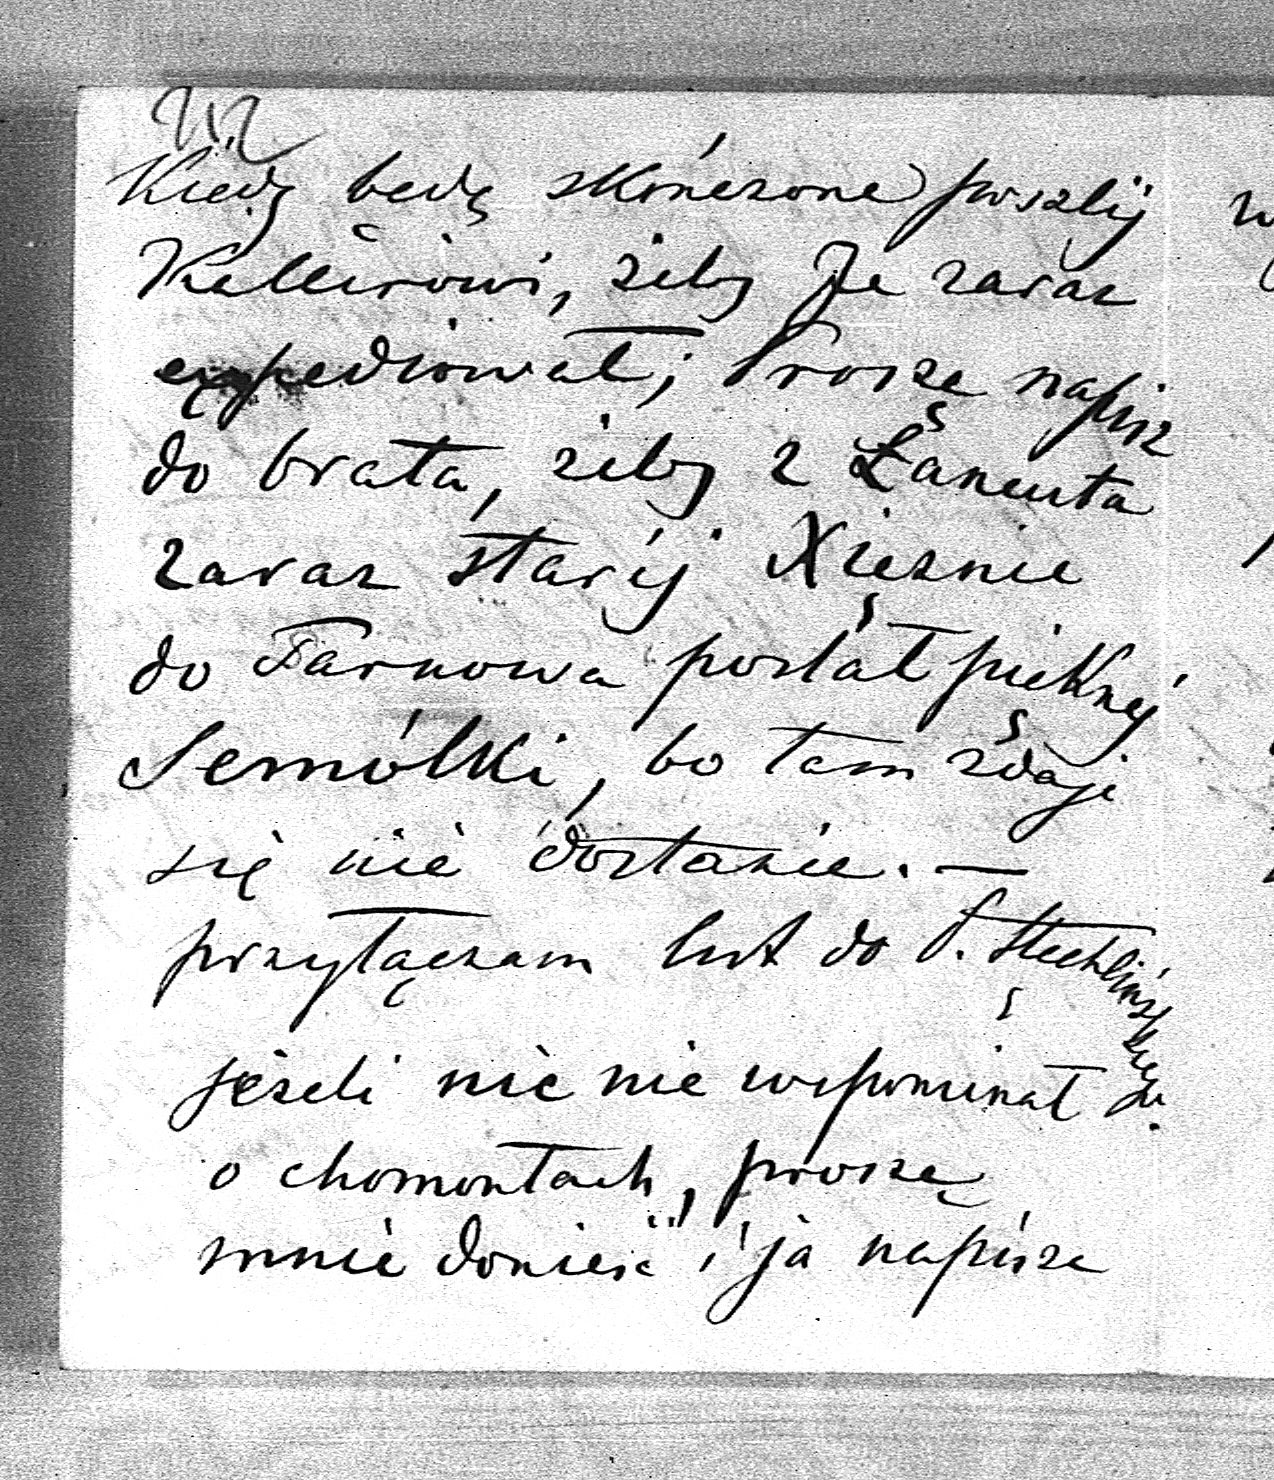 212
Kiedy będą skończone poszlij
Kellerowi, żeby Je zaraz
expediował; Proszę napisz
do brata, żeby z Łancuta
zaraz starej Xiężnie
do Tarnowa posłał pięknej
Semólki, bo tam zdaje
się nie dostanie. —
przyłączam list do P. Stechlińskiego.
jeżeli nic nie wspominał
o chomontach, proszę
mnie donieść i ja napiszę